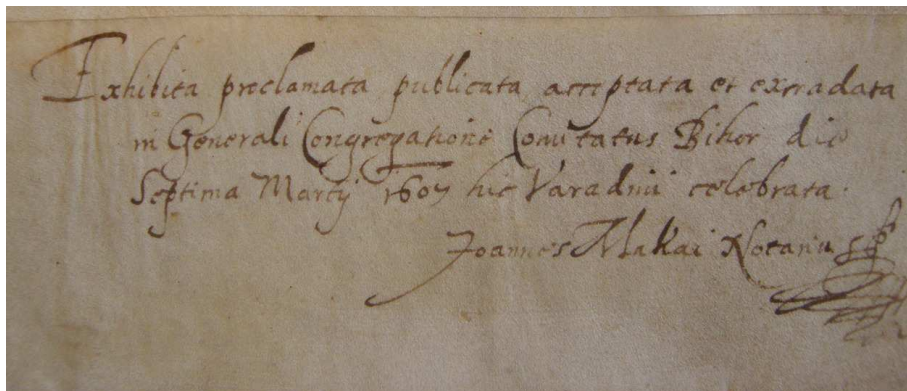 Exhibita proclamata publicata acceptata et extradata
in Generali Congregatione Comitatus Bihor die
Septima Martij 1607 hic Varadini celebrata.
Joannes Makai Notarius